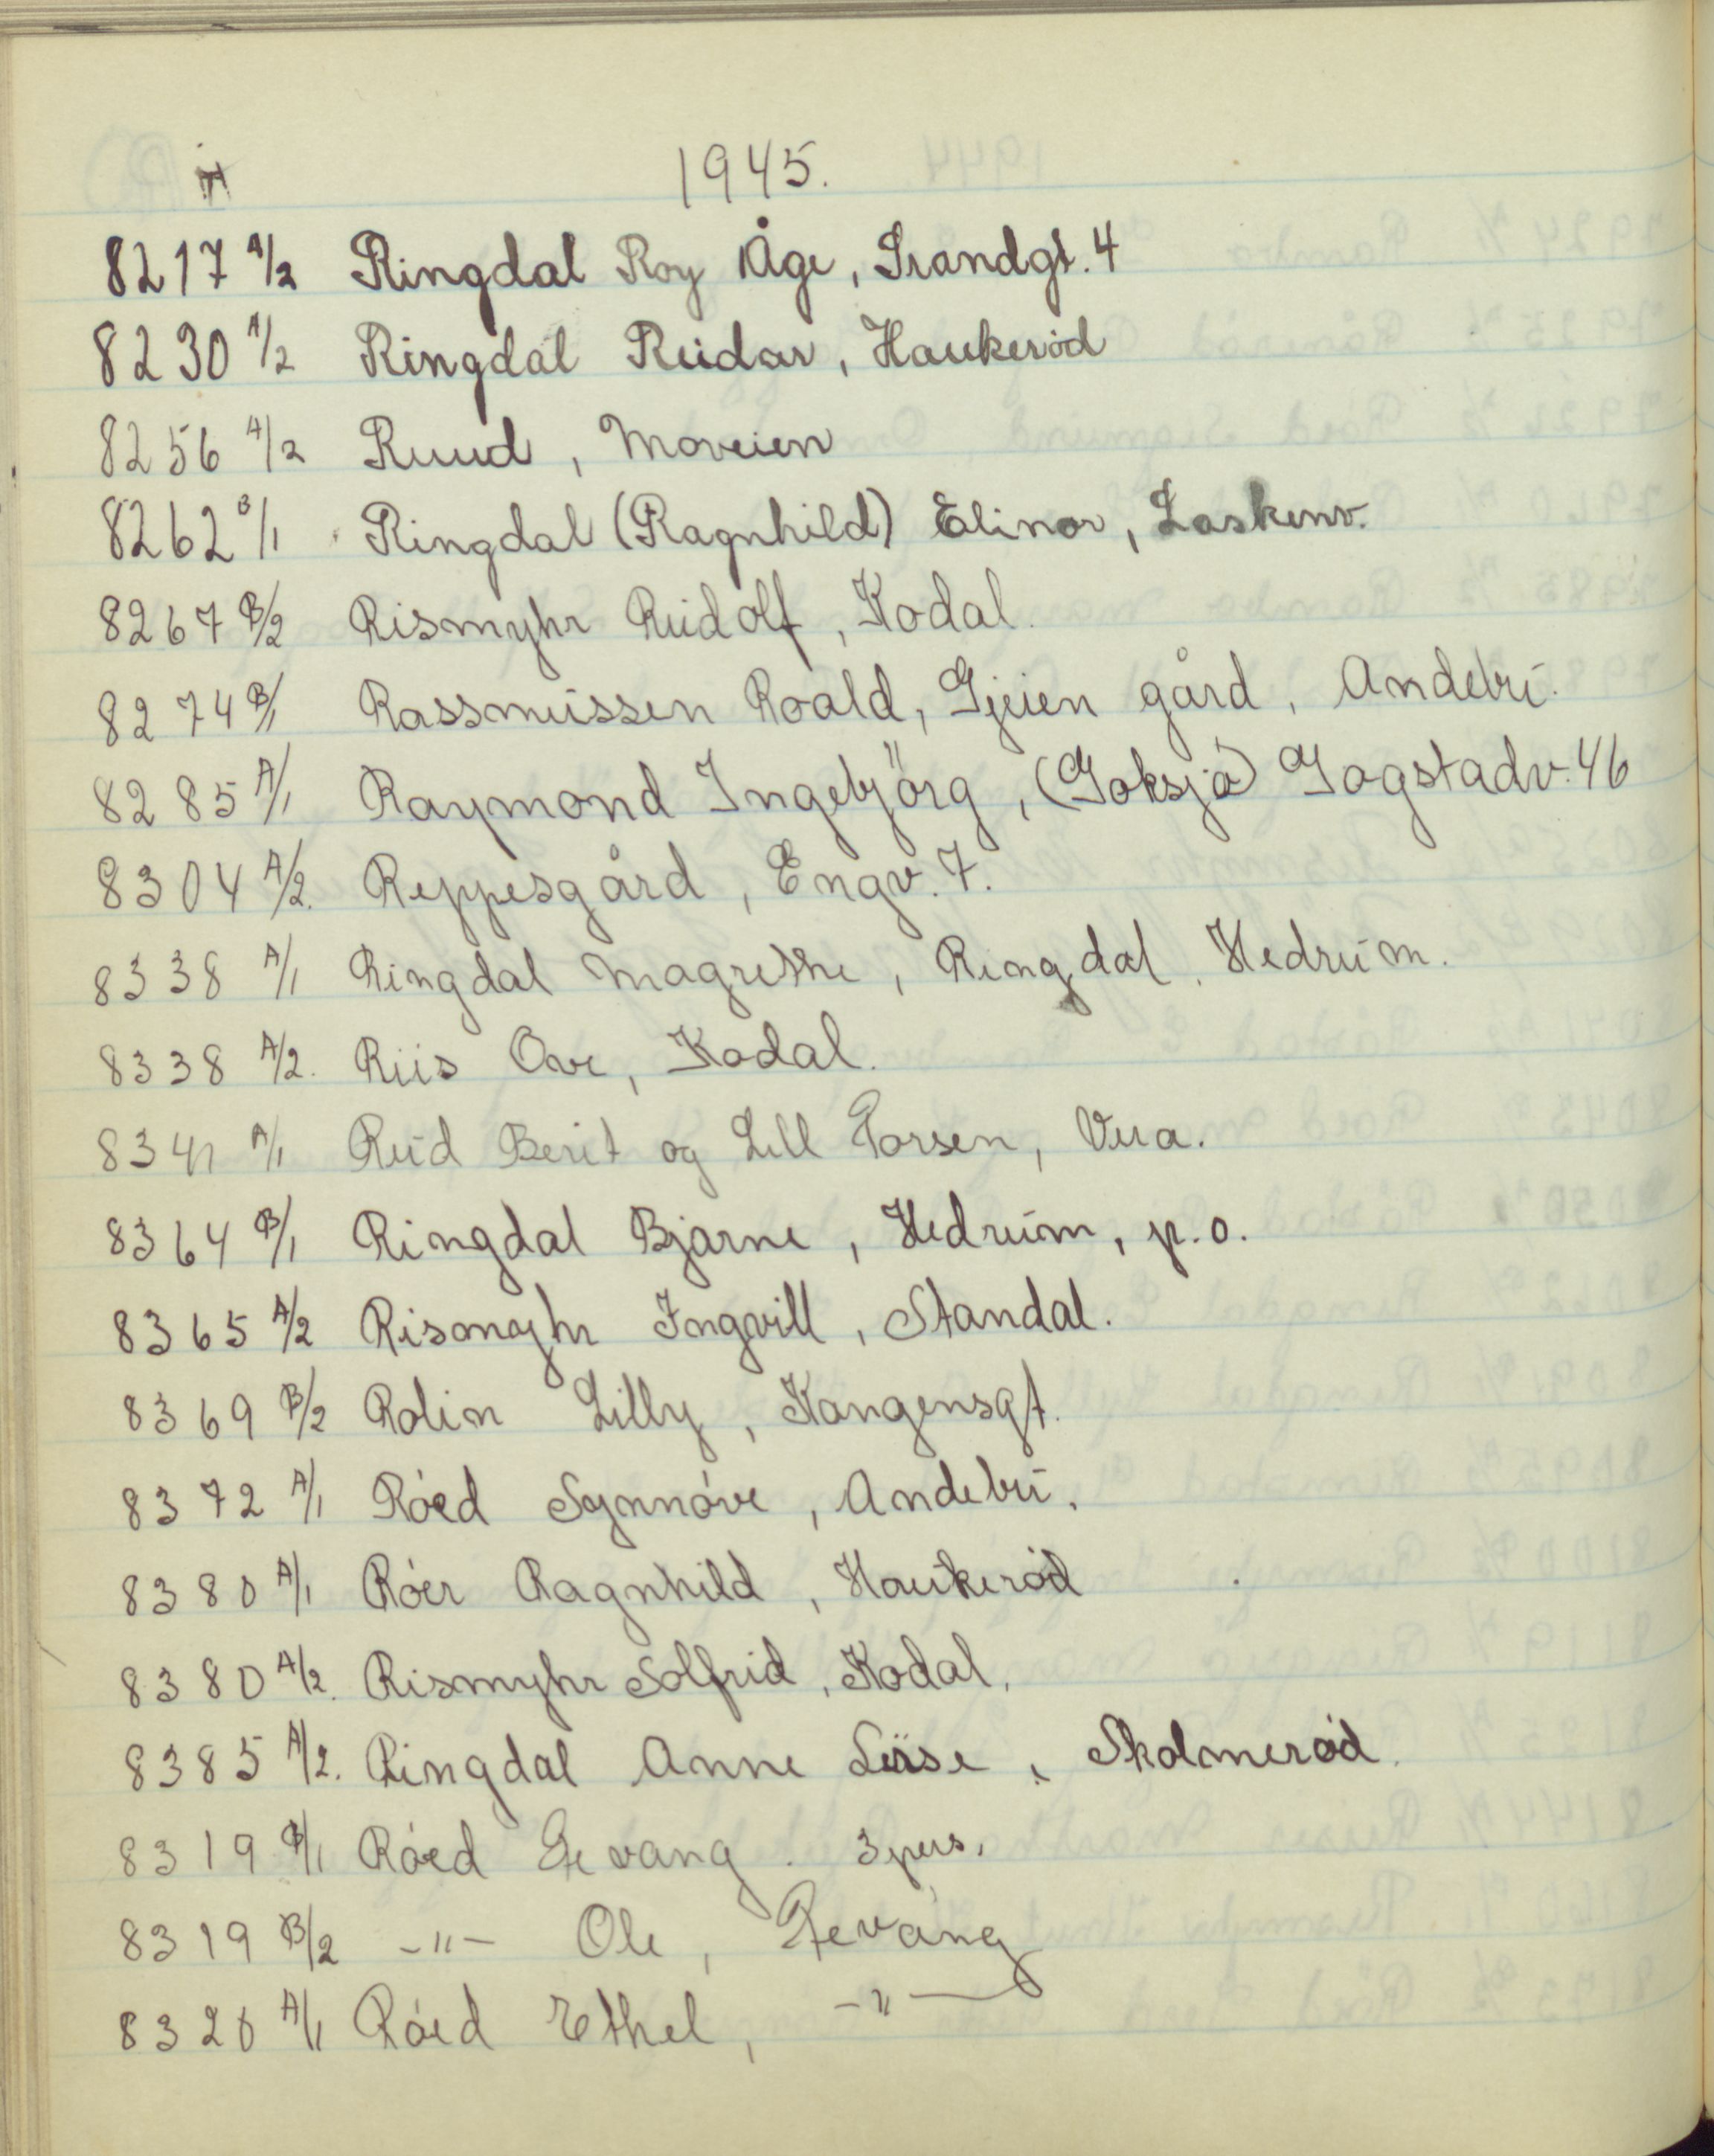 1945.
8217 A/2 Ringdal Roy Åge, Strandgt. 4
8230 A/2 Ringdal Reidar, Haukerød
8256 A/2 Ruud, Moveien
8262 B/1 Ringdal (Ragnhild) Elinor, Laskenv.
8267 B/2 Rismyhr Rudolf, Kodal.
8274 B/1 Rassmussen Roald, Gjeien gård, Andebu.
8285 A/1 Raymond Ingebjörg, (Goksjø) Gogstadv. 46
8304 A/2. Reppesgård, Engv. 7.
8338 A/1 Ringdal Magrethe, Ringdal, Hedrum.
8338 A/2. Riis Ove, Kodal.
A/1 Rud Berit og Lill Torsen, Vera.
8364 B/1 Ringdal Bjarne, Hedrum, p.o.
8365 A/2 Rismyhr Ingvill, Standal.
8369 B/2 Rolin Lilly, Kongensgt.
8372 A/1 Röed Synnöve, Andebu.
8380 A/1 Röer Ragnhild, Haukeröd
8380 A/2. Rismyhr Solfrid, Kodal.
8385 A/2. Ringdal Anne Lise, Skolmeröd.
8319 B/1 Röed Gevang. 3 pers.
8319 B/2 -"- Ole, Gevang
8320 A/1 Röed Ethel, -"-